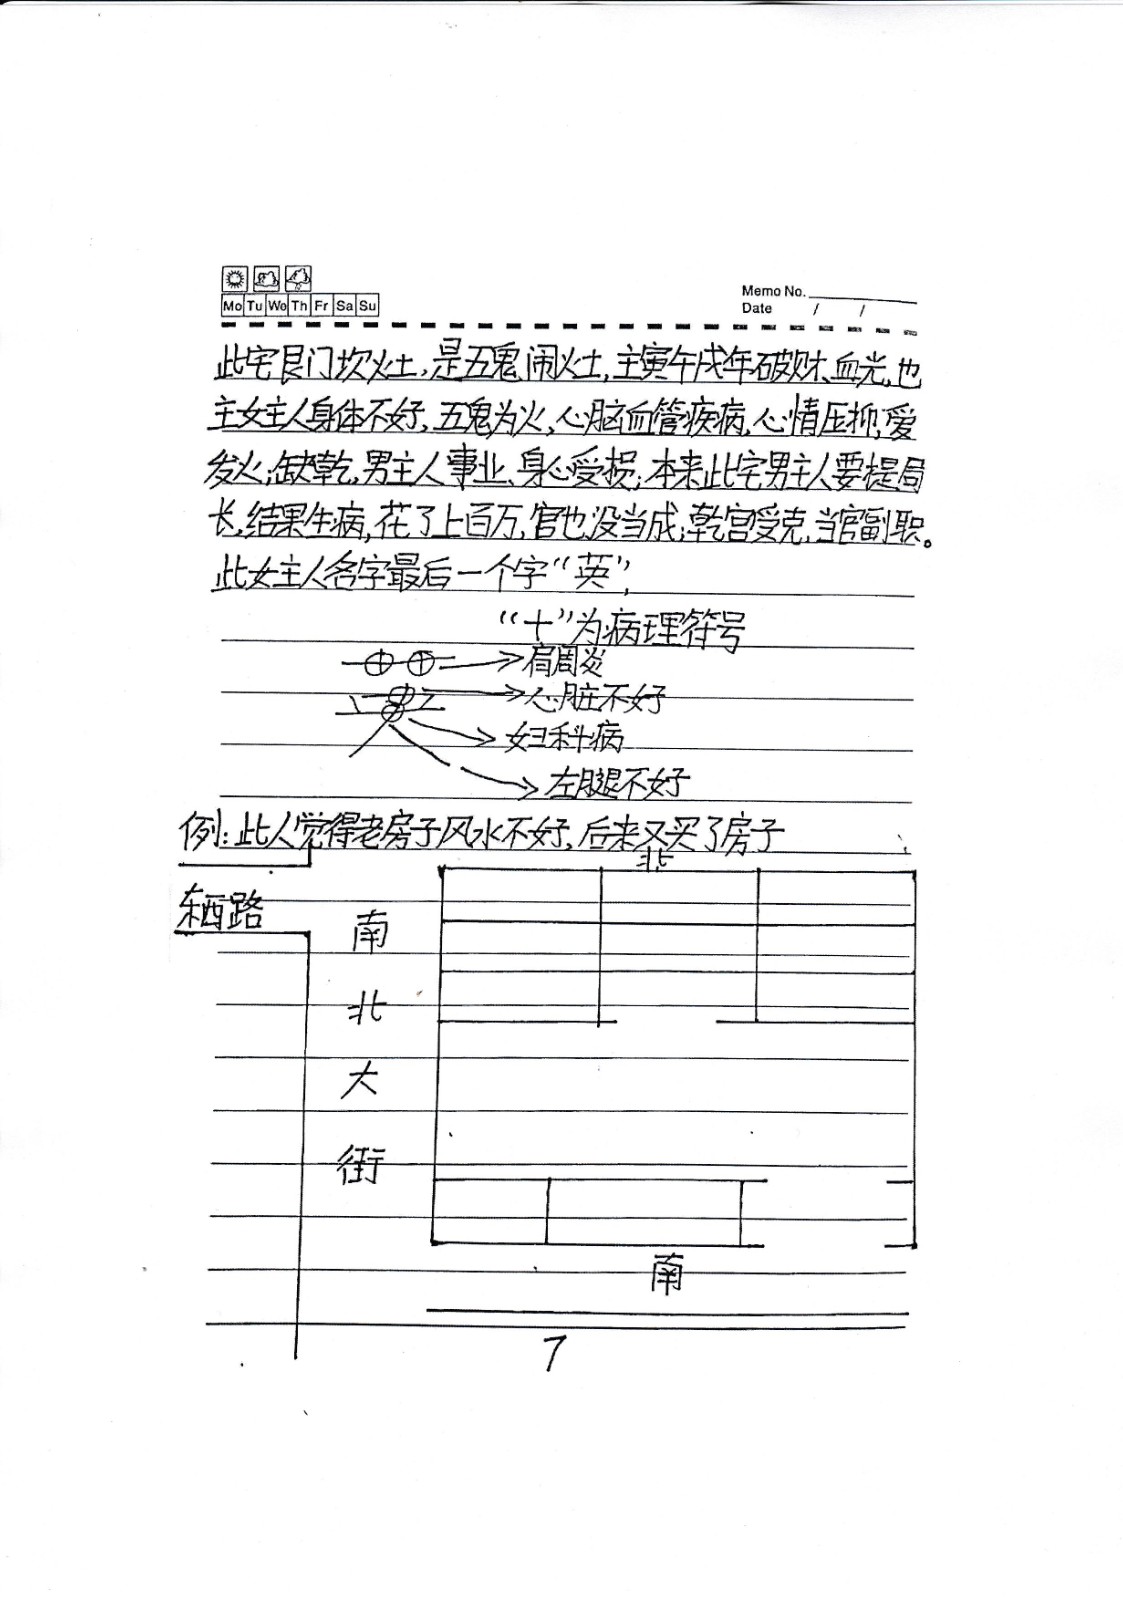 Mo Tu We Th Fr Sa Su
Memo No.
Date / /
此宅艮门坎灶,是五鬼闹灶,主寅午戌年破财、血光,也
主女主人身体不好,五鬼为火,心脑血管疾病,心情压抑,爱
发火;缺乾,男主人事业、身心受损;本来此宅男主人要提局
长,结果生病,花了上百万,官也没当成;乾宫受克,当官副职。
此女主人名字最后一个字“英”,
“十”为病理符号
肩周炎
心脏不好
妇科病
左腿不好
例:此人觉得老房子风水不好,后来又买了房子
北
东西路
南
北
大
街
南
7